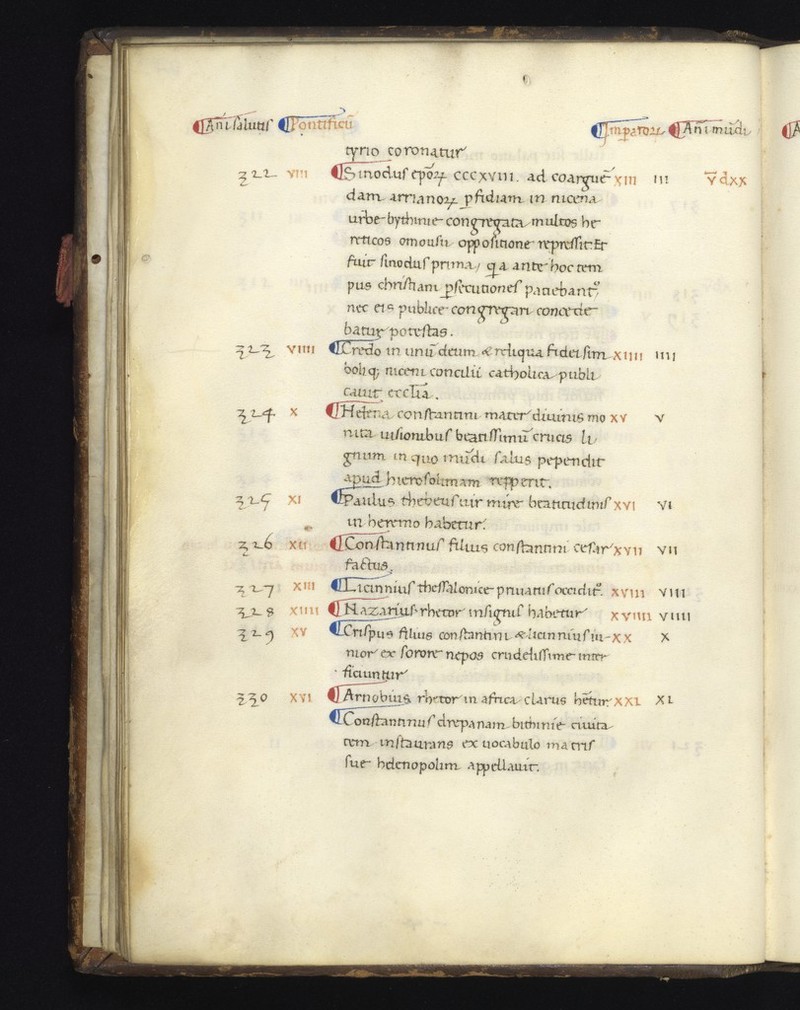 Añi salutis Pontificũ Imperatorꝝ Añi mũdi
tyrio coronatur
322 VIII Sinodus ep̃oꝝ CCCXVIII. ad coarguẽ XIII III V̄dxx
dam arrianoꝝ ꝑfidiam in nicena
urbe bythinie congregata multos he
reticos omousii oppositione repressit. Et
fuit sinodus prima, q̃a ante hoc tem
pus christiani ꝑsecutiones patiebantᷣ
nec eis publice congregari concede
batur potestas.
323 VIIII Credo in unũ deum & reliqua fidei sim XIIII IIII
boliq; niceni concilii catholica publi
cauit eccl̃ia.
324 X Helena constantini mater diuinis mo XV V
nita uisionibus beatissimũ crucis li
gnum in quo mũdi salus pependit
apud hierosolimam repperit.
325 XI Paulus thebeus uir mire beatitudinis XVI VI
in heremo habetur.
326 XII Constantinus filius constantini cesar XVII VII
factus.
327 XIII Licinnius thessalonice priuatus occiditᷣ. XVIII VIII
328 XIIII Nazarius rhetor insignis habetur XVIIII VIIII
329 XV Crispus filius constantini & licinnius iu- XX X
nior ex sorore nepos crudelissime inter
ficiuntur
330 XVI Arnobius rhetor in africa clarus hẽtur XXI XI
Constantinus drepanam bithinie ciuita
tem instaurans ex uocabulo matris
sue helenopolim appellauit.